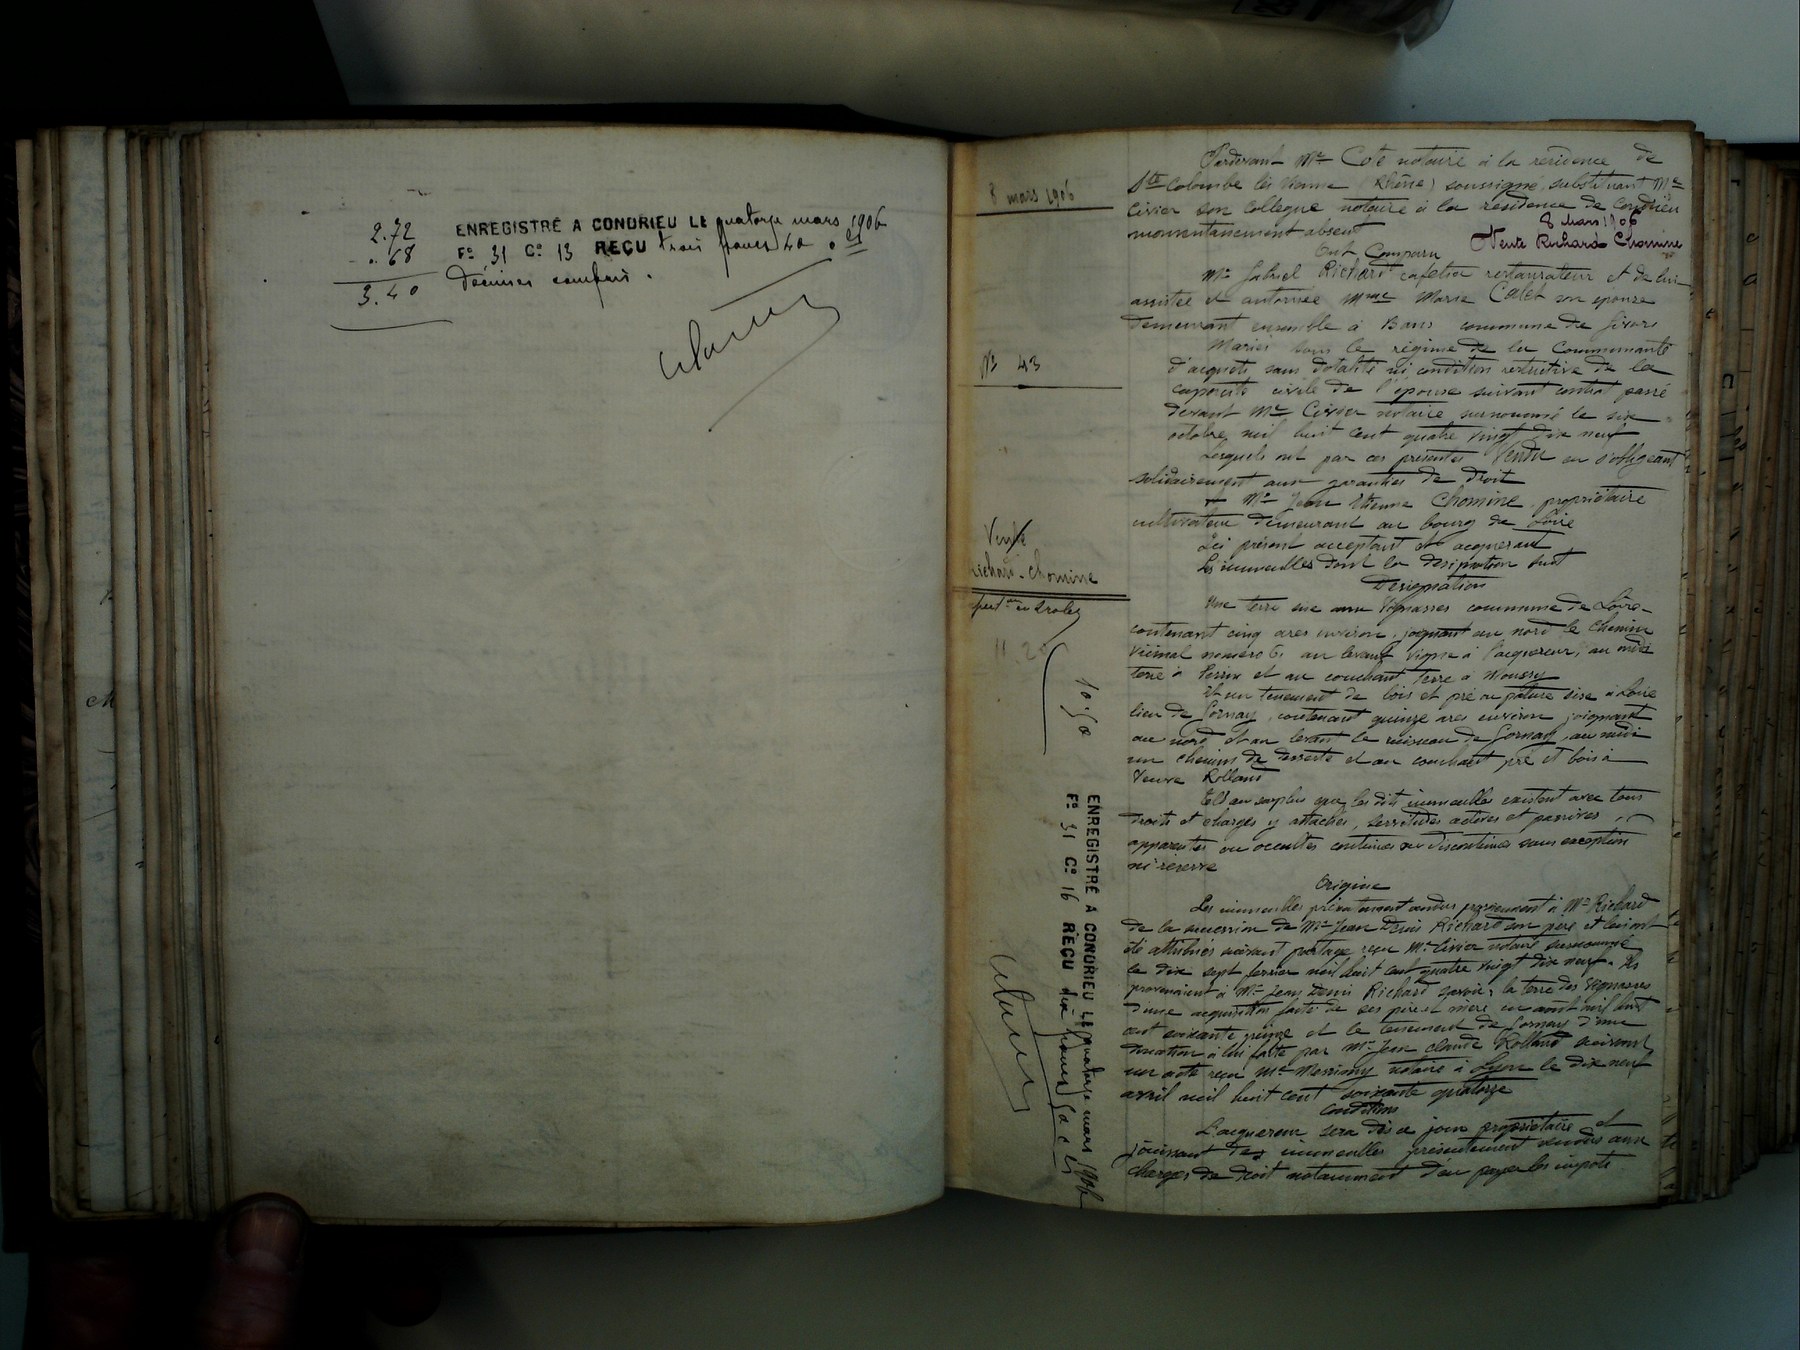 2.72
.68
3.40
ENREGISTRÉ A CONDRIEU LE quatorze mars 1906
Fº 31 Cº 13 REÇU trois francs 40 c
Décimes compris.
8 mars 1906
Nº 43
Vente
Richard-Chomine
10.50
ENREGISTRÉ A CONDRIEU LE quatorze mars 1906
Fº 31 Cº 16 REÇU dix francs 50 c
Pardevant Me Cote notaire à la résidence de
Ste Colombe lès Vienne (Rhône) soussigné, substituant Me
Civier son collègue notaire à la résidence de Condrieu
momentanément absent
8 mars 1906
Vente Richard Chomine
Ont Comparu
Mr Gabriel Richard cafetier restaurateur et de lui
assistée et autorisée Mme Marie Colet son épouse
demeurant ensemble à Bans commune de Givors
Mariés sous le régime de la Communauté
d'acquets sans dotalité ni condition restrictive de la
capacité civile de l'épouse suivant contrat passé
devant Me Civier notaire surnommé le six
octobre mil huit cent quatre vingt dix neuf
Lesquels ont par ces présentes Vendu en s'obligeant
solidairement aux garanties de droit
à Mr Jean Etienne Chomine, propriétaire
cultivateur demeurant au bourg de Loire
Ici présent acceptant et acquérant
Les immeubles dont la désignation suit
Désignation
Une terre sise aux Vignasses commune de Loire
contenant cinq ares environ, joignant au nord le chemin
vicinal numéro 6, au levant vigne à l'acquéreur, au midi
terre à Perrin et au couchant terre à Moussy
Et un tènement de bois et pré ou pâture sise à Loire
lieu de Gornay, contenant quinze ares environ joignant
au nord et au levant le ruisseau de Gornay, au midi
un chemin de desserte et au couchant pré et bois à
Veuve Rolland
Tels au surplus que les dits immeubles existent avec tous
droits et charges y attachés, servitudes actives et passives,
apparentes ou occultes continues ou discontinues sans exception
ni réserve
Origine
Les immeubles présentement vendus proviennent à Mr Richard
de la succession de Mr Jean Denis Richard son père et lui ont
été attribués suivant partage reçu Me Civier notaire surnommé
le dix sept février mil huit cent quatre vingt dix neuf. Ils
provenaient à Mr Jean Denis Richard savoir: la terre des Vignasses
d'une acquisition faite de ses père et mère en août mil huit
cent soixante quinze et le tènement de Gornay d'une
donation à lui faite par Mr Jean Claude Rolland suivant
un acte reçu Me Messimy notaire à Lyon le dix neuf
avril mil huit cent soixante quatorze
Conditions
L'acquéreur sera dès ce jour propriétaire et
jouissant des immeubles présentement vendus aux
charges de droit notamment d'en payer les impôts